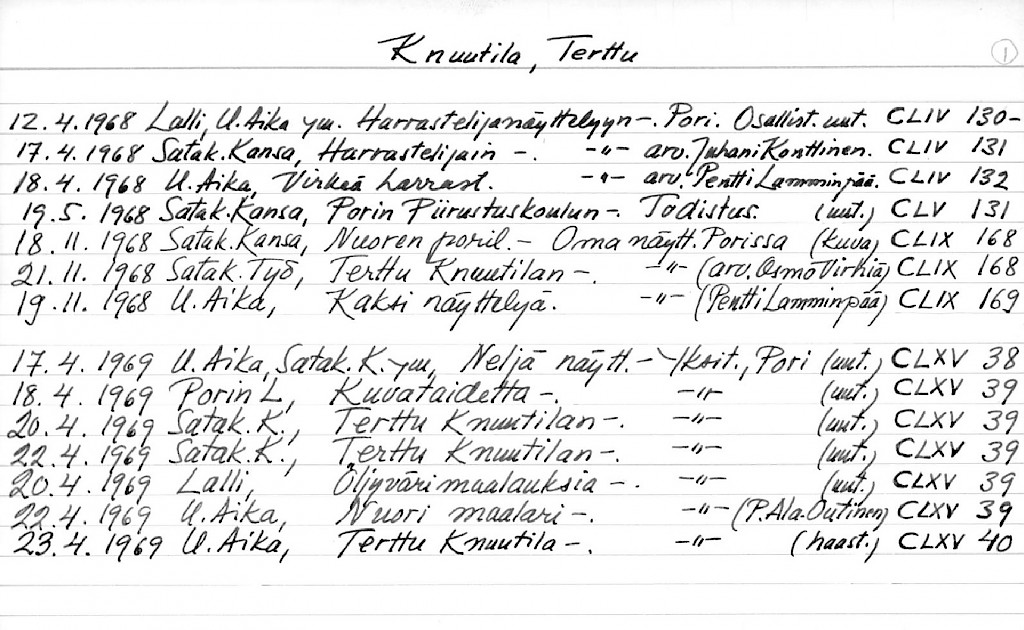 Knuutila, Terttu 1
12.4.1968 Lalli, U.Aika ym. Harrastelijanäyttelyyn -. Pori. Osallist. uut. CLIV 130-
17.4.1968 Satak.Kansa, Harrastelijain -. -"- arv. Juhani Konttinen. CLIV 131
18.4.1968 U.Aika, Virkeä harrast. -"- arv. Pentti Lamminpää. CLIV 132
19.5.1968 Satak.Kansa, Porin Piirustuskoulun -. Todistus. (uut.) CLV 131
18.11.1968 Satak.Kansa, Nuoren poril. - Oma näytt. Porissa (kuva) CLIX 168
21.11.1968 Satak.Työ, Terttu Knuutilan -. -"- (arv. Osmo Virhiä) CLIX 168
19.11.1968 U.Aika, Kaksi näyttelyä. -"- (Pentti Lamminpää) CLIX 169
17.4.1969 U.Aika, Satak.K. ym, Neljä näytt. - Yksit., Pori (uut.) CLXV 38
18.4.1969 Porin L, Kuvataidetta -. -"- (uut.) CLXV 39
20.4.1969 Satak.K., Terttu Knuutilan -. -"- (uut.) CLXV 39
22.4.1969 Satak.K., Terttu Knuutilan -. -"- (uut.) CLXV 39
20.4.1969 Lalli, Öljyvärimaalauksia -. -"- (uut.) CLXV 39
22.4.1969 U.Aika, Nuori maalari -. -"- (P.Ala-Outinen) CLXV 39
23.4.1969 U.Aika, Terttu Knuutila -. -"- (haast.) CLXV 40